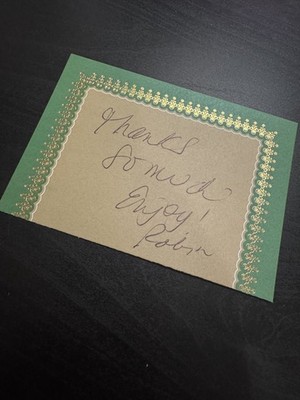 Thanks
So much
Enjoy!
Robin